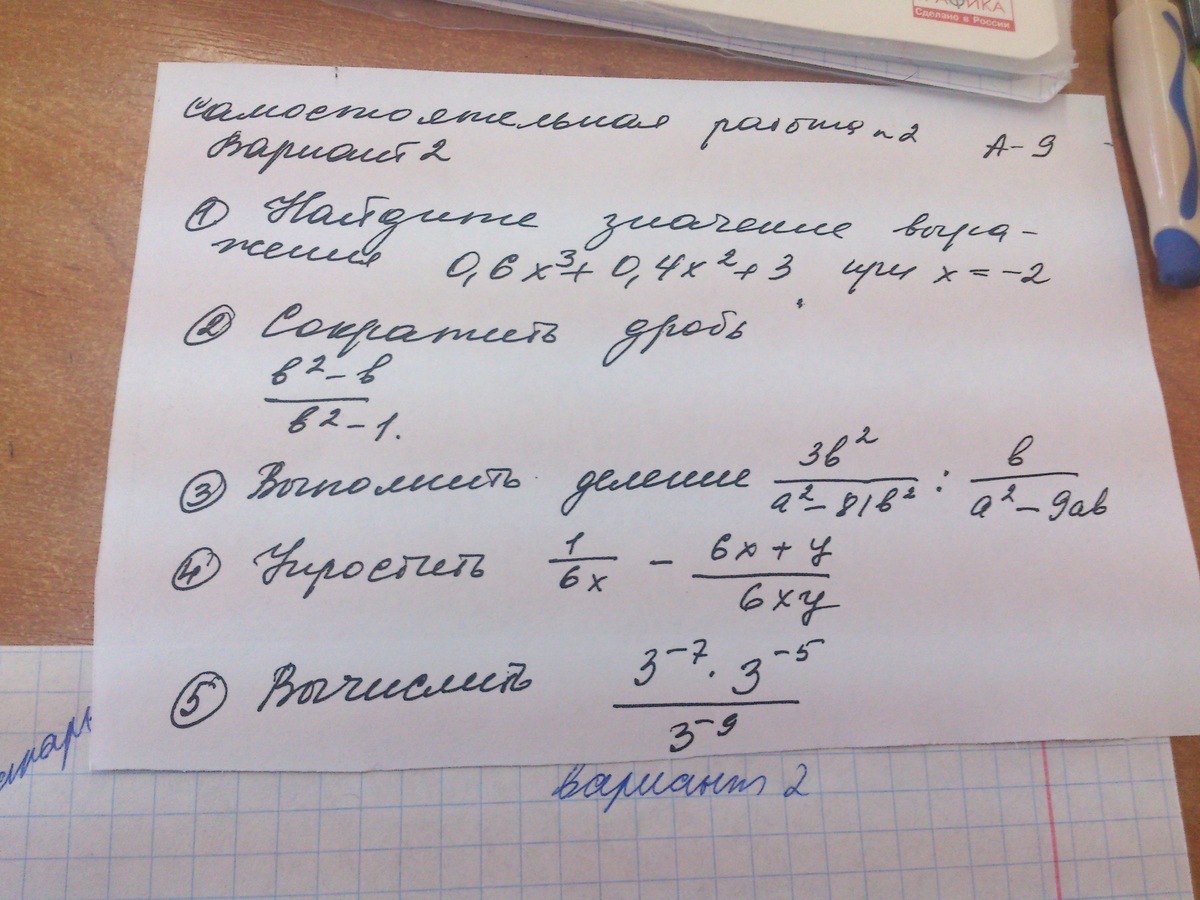 АФИКА
Сделано в России
Самостоятельная работа n2 А-9
Вариант 2
① Найдите значение выра-
жения 0,6x³+0,4x²+3 при x=-2
② Сократить дробь
в²-в
в²-1.
③ Выполнить деление 3в²/(a²-81в²) : в/(a²-9ав)
④ Упростить 1/(6x) - (6x+y)/(6xy)
⑤ Вычислить (3⁻⁷·3⁻⁵)/3⁻⁹
Вариант 2